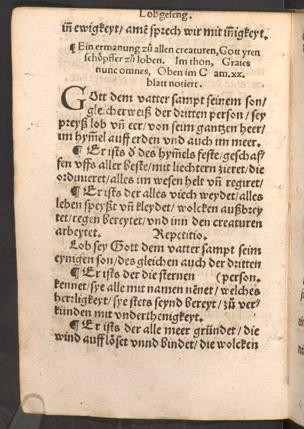 Lobgeseng.
iñ ewigkeyt/ amē sprech wir mit iñigkeyt.
¶ Ein ermanung zů allen creaturen, Gott yren
schöpffer zu loben. Im thon, Grates
nunc omnes, Oben im C am.xx.
blatt notiert.
GOtt dem vatter sampt seinem son/
gleicherweiß der dritten person/ sey
preyß lob vñ eer/ von seim gantzen heer/
im hym̄el auff erden vnd auch im meer.
¶ Er ists d' des hym̄els feste/ geschaf/
fen vffs aller beste/ mit liechtern zieret/ die
ordinieret/ alles im wesen helt vñ regiret/
¶ Er ists der alles viech weydet/ alles
leben speyßt vñ kleydet/ wolcken außbrey
tet/ regen bereytet/ vnd inn den creaturen
arbeytet. Repetitio.
Lob sey Gott dem vatter sampt seim
eynigen son/ des gleichen auch der dritten
¶ Er ists der die sternen (person.
kennet/ sye alle mit namen nēnet/ welches
herrligkeyt/ sye stets seynd bereyt/ zů ver/
künden mit vnderthenigkeyt.
¶ Er ists der alle meer gründet/ die
wind aufflöset vnnd bindet/ die wolcken